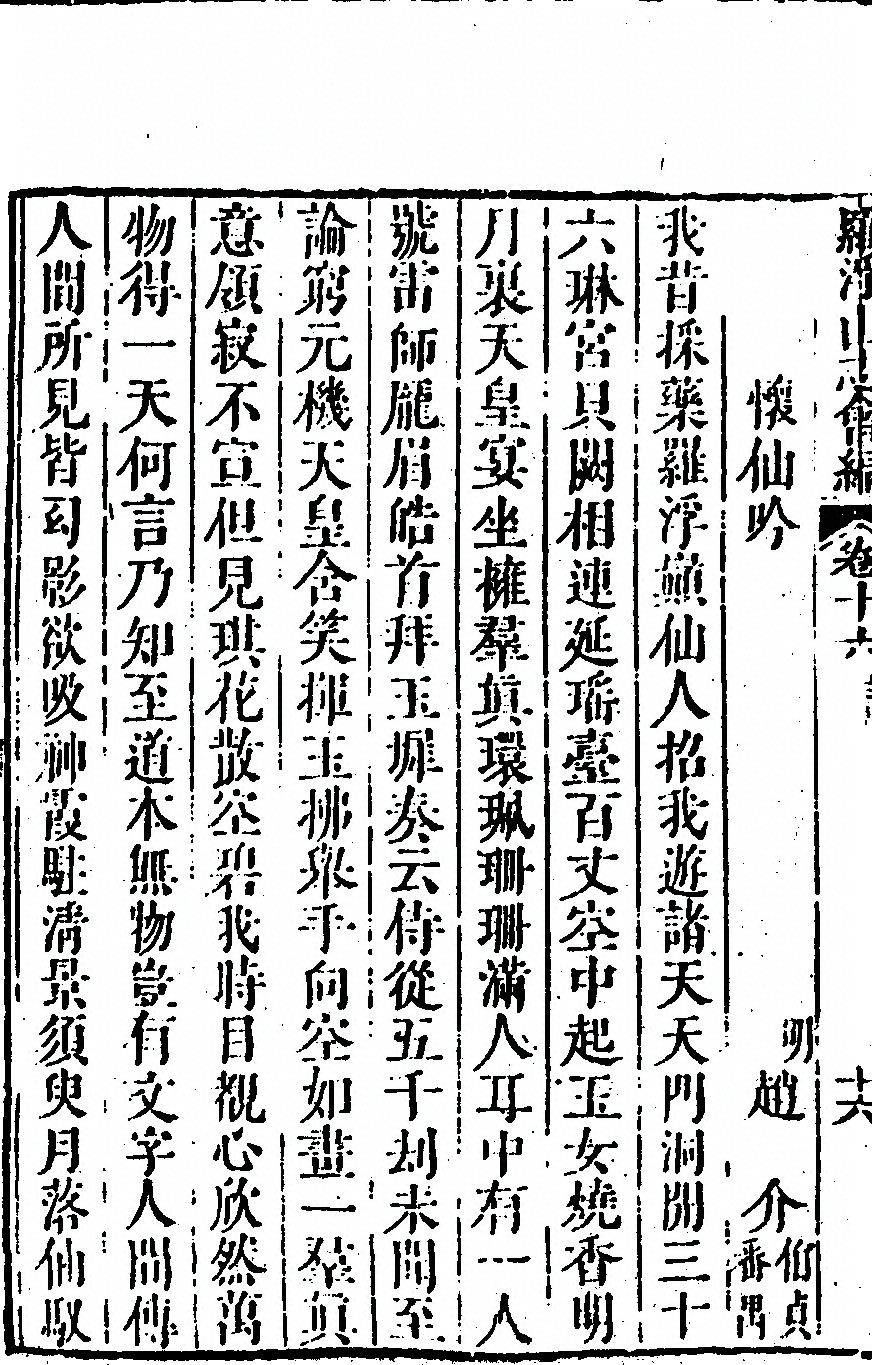 羅浮山志會編 卷十六 詩 十六
懷仙吟 明 趙介 伯貞 番禺
我昔採藥羅浮巔仙人招我遊諸天天門洞開三十
六琳宮貝闕相連延瑤臺百丈空中起玉女燒香明
月裏天皇宴坐擁羣真環珮珊珊滿人耳中有一人
號雷師龎眉皓首拜玉墀奏云侍從五千刼未聞至
論窮元機天皇含笑揮玉拂舉手向空如畫一羣真
意領寂不宣但見琪花散空碧我時目覩心欣然萬
物得一天何言乃知至道本無物豈有文字人間傳
人間所見皆幻影欲吸神霞駐清景須臾月落仙馭